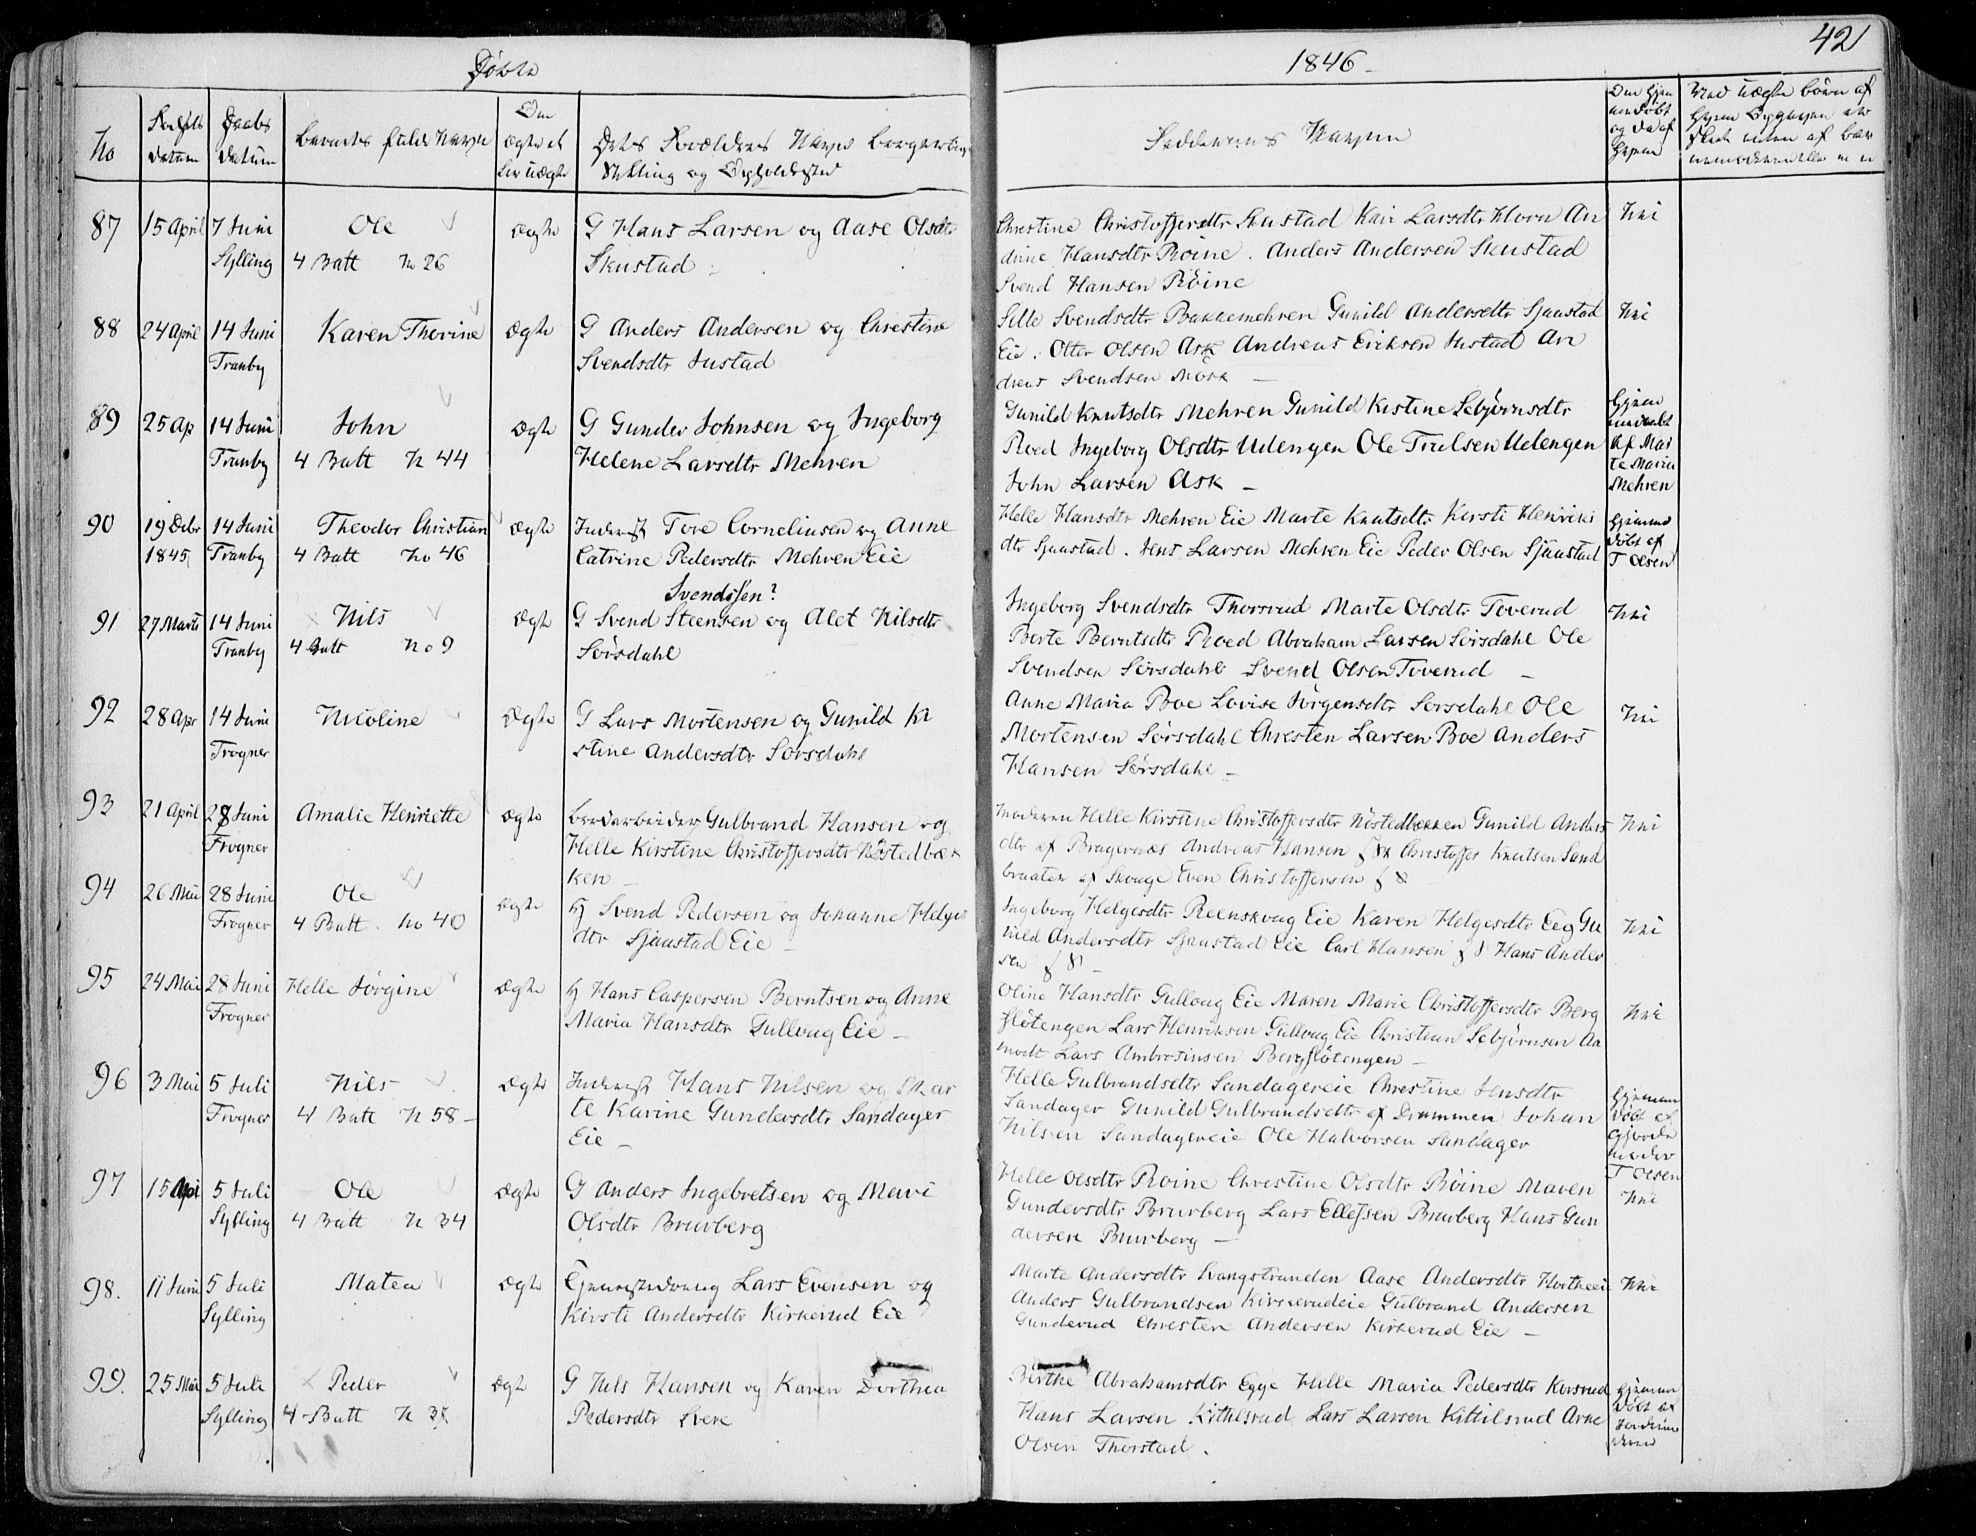 Døbte
1846
42
No
Fødsels Datum
Daabs Datum
Barnets fulde Navn
Om ægte el
ler uægte
Dets Forældres Navne Borgerlig
Stilling og Opholdssted
Faddernes Navne
Om hjem
medøbt
og da af
hvem
87 15 April 7 Juni Ole ægte G Hans Larsen og Aase Olsdtr
Sylling 4 Batt No 26 Skustad
Christine Christoffersdtr Skustad Kari Larsdtr Horn An
drine Hansdtr Röine. Anders Andersen Skustad
Svend Hansen Röine
Nei
88 24 April 14 Juni Karen Thorine ægte G Anders Andersen og Christine
Tranby Svendsdtr Justad
Sille Svendsdtr Bakkemehren Gunild Andersdtr Sjaastad
Eie. Otter Olsen Ask Andreas Ericksen Justad An
dreas Svendsen Mörk
Nei
89 25 Ap 14 Juni John ægte G Gunder Johnsen og Ingeborg
Tranby 4 Batt N 44 Helene Larsdtr Mehren
Gunild Knutsdtr Mehren Gunild Kistine Sebjörnsdtr
Roed Ingeborg Olsdtr Udengen Ole Trulsen Udengen
John Larsen Ask
Hjem
medøbt
af Mar
te Maria
Mehren
90 19 Debr 14 Juni Theodor Christian ægte Inderst Tore Corneliusen og Anne
1845 Tranby 4 Batt No 46 Catrine Pedersdtr Mehren Eie
Helle Hansdtr Mehren Eie Marte Knutsdtr Kersti Henriks
dtr Sjaastad. Jens Larsen Mehren Eie Peder Olsen Sjaastad
Hjemme
døbt af
T Olsen
Svendsen?
91 27 Marts 14 Juni Nils ægte G Svend Steensen og Alet Nilsdtr
Tranby 4 Batt No 9 Sörsdahl
Ingeborg Svendsdtr Thorsrud Marte Olsdtr Toverud
Berte Berntsdtr Roed Abraham Larsen Sörsdahl Ole
Svendsen Sörsdahl Svend Olsen Toverud
Nei
92 28 Apr 14 Juni Nicoline ægte G Lars Mortensen og Gunild Ki
Frogner stine Andersdtr Sörsdahl
Anne Maria Boe Lovise Jörgensdtr Sörsdahl Ole
Mortensen Sörsdahl Christen Larsen Boe Anders
Hansen Sörsdahl
Nei
93 21 April 28 Juni Amalie Henriette ægte Gulbrand Hansen og
Frogner Helle Kirstine Christoffersdtr Nöstedbæk
ken
Moderen Helle Kirstine Christoffersdtr Nöstedbækken Gunild Anders
dtr af Bragernæs Andreas Hansen Christoffer Knutsen Sand
braaten af Skouge Even Christoffersen
Nei
94 26 Mai 28 Juni Ole ægte Hj Svend Pedersen og Johanne Helges
Frogner 4 Batt. No 40 dtr Sjaastad Eie
Ingeborg Helgesdtr Reenskoug Eie Karen Helgesdtr Eeg Gu
nild Andersdtr Sjaastad Eie Carl Hansen Hans Ander
sen
Nei
95 24 Mai 28 Juni Helle Jörgine ægte Hj Hans Caspersen Berntsen og Anne
Frogner Maria Hansdtr Gulloug Eie
Oline Hansdtr Gulloug Eie Maren Marie Christoffersdtr Berg
flötengen Lars Henriksen Gulloug Eie Christian Sebjörnsen Aa
modt Lars Ambrosiusen Bergflötengen
Nei
96 3 Mai 5 Juli Nils ægte Inderst Hans Nilsen og Mar
Frogner 4 Batt N 58 te Karine Gundersdtr Sandager
Eie
Helle Gulbrandsdtr Sandagereie Christine Jensdtr
Sandager Gunild Gulbrandsdtr af Drammen Johan
Nilsen Sandagereie Ole Halvorsen Sandager
Hjemme
døbt af
T Olsen
97 15 Apr 5 Juli Ole ægte G Anders Ingebretsen og Mari
Sylling 4 Batt N 34 Olsdtr Brurberg
Helle Olsdtr Röine Christine Olsdtr Röine Maren
Gundersdtr Brurberg Lars Ellefsen Brurberg Hans Gun
dersen Brurberg
Nei
98. 11 Juni 5 Juli Matea ægte Lars Evensen og
Sylling Kirsti Andersdtr Kirkerud Eie
Marte Andersdtr Svangstranden Aase Andersdtr
Anders Gulbrandsen Kirkerudeie Gulbrand Andersen
Gunderud Christen Andersen Kirkerud Eie
Nei
99. 25 Mai 5 Juli Peder ægte G Nils Hansen og Karen Dorthea
Sylling 4 Batt N Pedersdtr Svere
Birthe Abrahamsdtr Egge Helle Maria Pedersdtr Korsrud
Hans Larsen Kittilsrud Lars Larsen Kittilsrud Arne
Olsen Thorstad.
Hjemme
døbt af